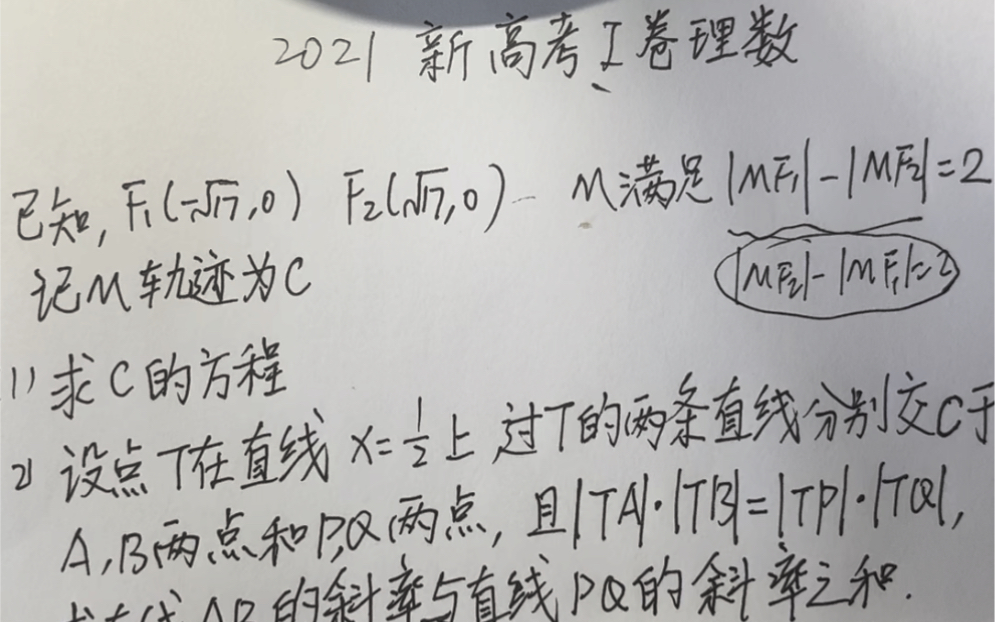 2021 新高考I卷理数
已知, F₁(-√17,0) F₂(√17,0) M满足 |MF₁|-|MF₂|=2
|MF₂|-|MF₁|=2
记M轨迹为C
1) 求C的方程
2) 设点T在直线 x=1/2 上 过T的两条直线分别交C于
A,B两点和P,Q两点, 且|TA|·|TB|=|TP|·|TQ|,
的斜率与直线PQ的斜率之和.